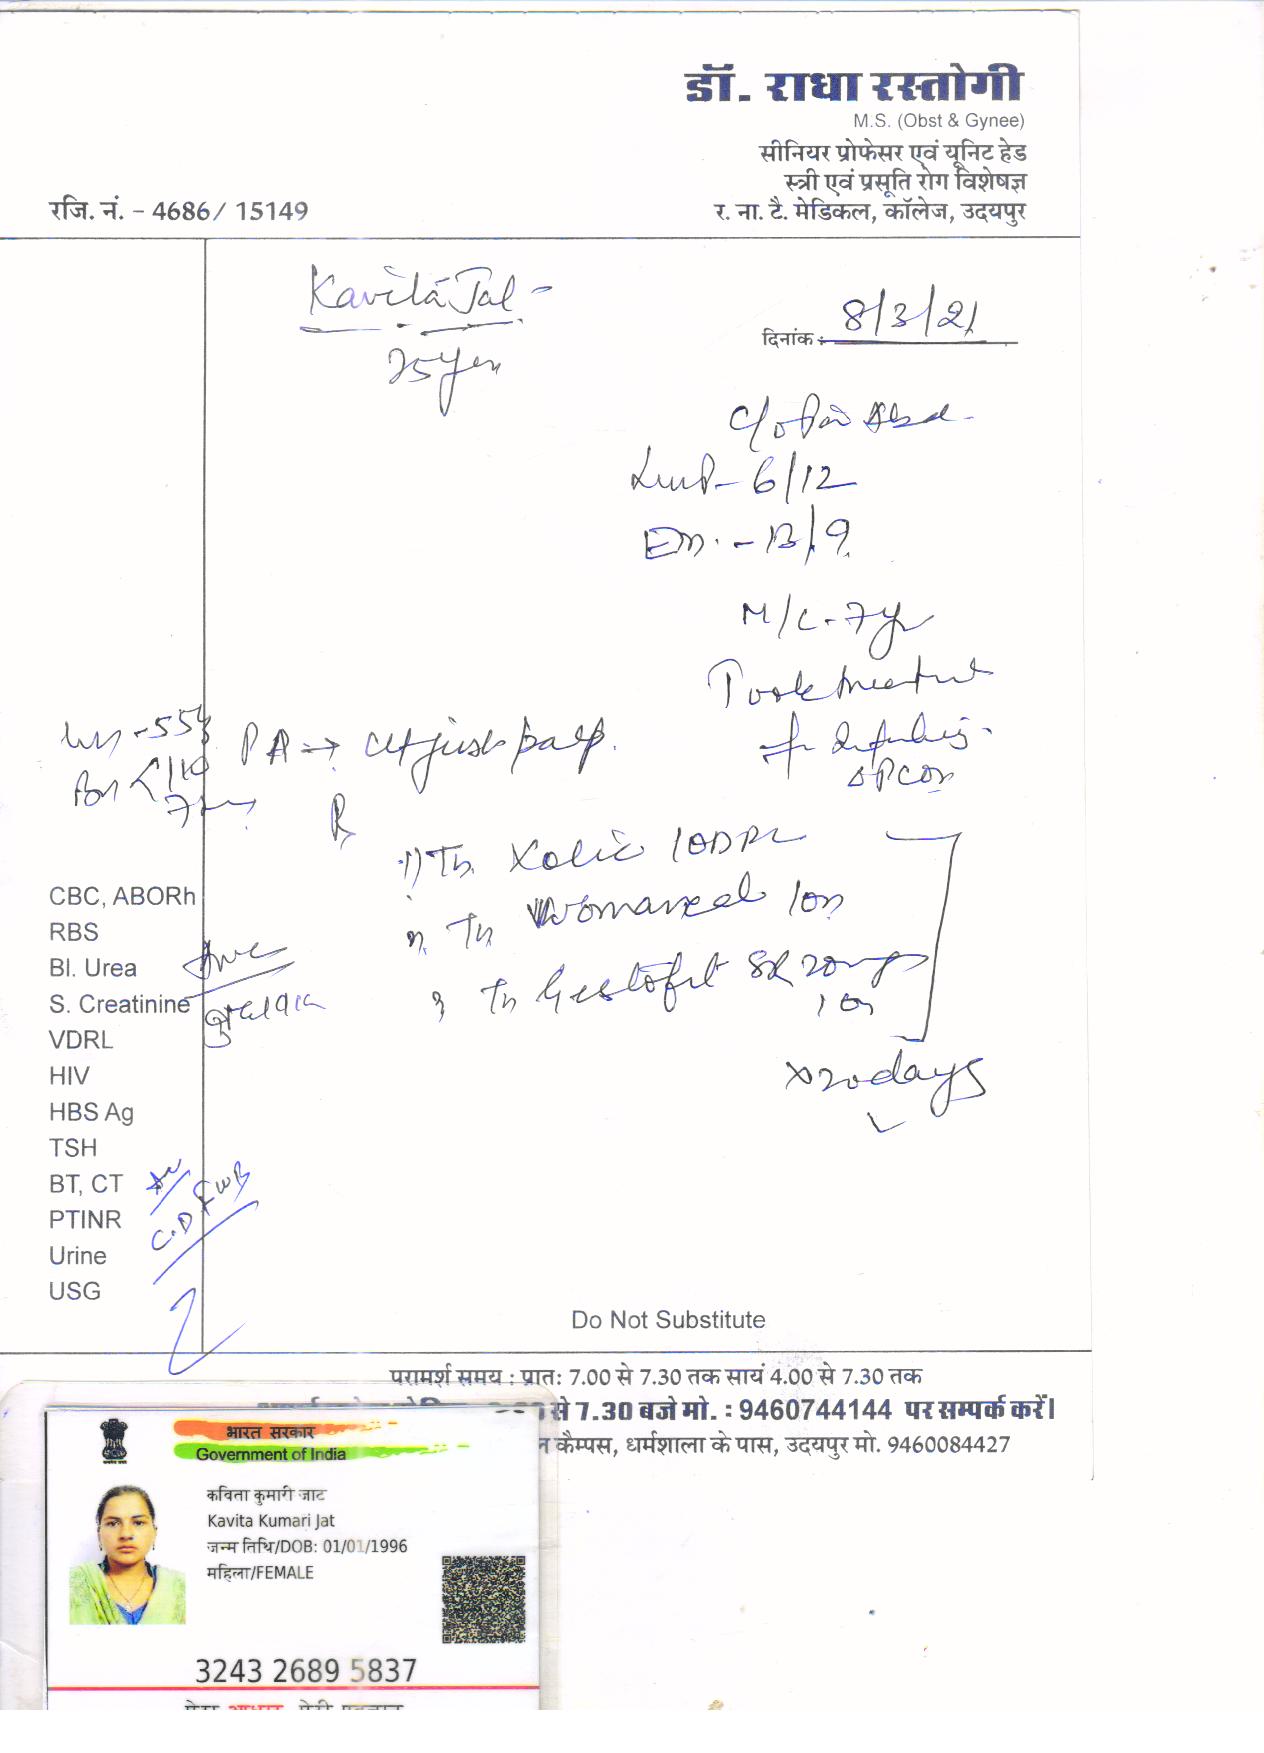 डॉ. राधा रस्तोगी
M.S. (Obst & Gynee)
सीनियर प्रोफेसर एवं यूनिट हेड
स्त्री एवं प्रसूति रोग विशेषज्ञ
रजि. नं. - 4686/ 15149
र. ना. टै. मेडिकल, कॉलेज, उदयपुर
Kavita Jat
दिनांक : 8/3/21
25 yrs
C/o
LMP - 6/12
- 13/9
M/L - 7 yr
Took treatment
PA → just palp.
1) Tb. Xolic 1OD
Tb Womaneed 1OD
3 Tb Gestofit SR 20mg
1 OD
x 20 days
CBC, ABORh
RBS
Bl. Urea
S. Creatinine
VDRL
HIV
HBS Ag
TSH
BT, CT
PTINR
Urine
USG
Do Not Substitute
परामर्श समय : प्रातः 7.00 से 7.30 तक सायं 4.00 से 7.30 तक
से 7.30 बजे मो. : 9460744144 पर सम्पर्क करें।
कैम्पस, धर्मशाला के पास, उदयपुर मो. 9460084427
भारत सरकार
Government of India
कविता कुमारी जाट
Kavita Kumari Jat
जन्म तिथि/DOB: 01/01/1996
महिला/FEMALE
3243 2689 5837